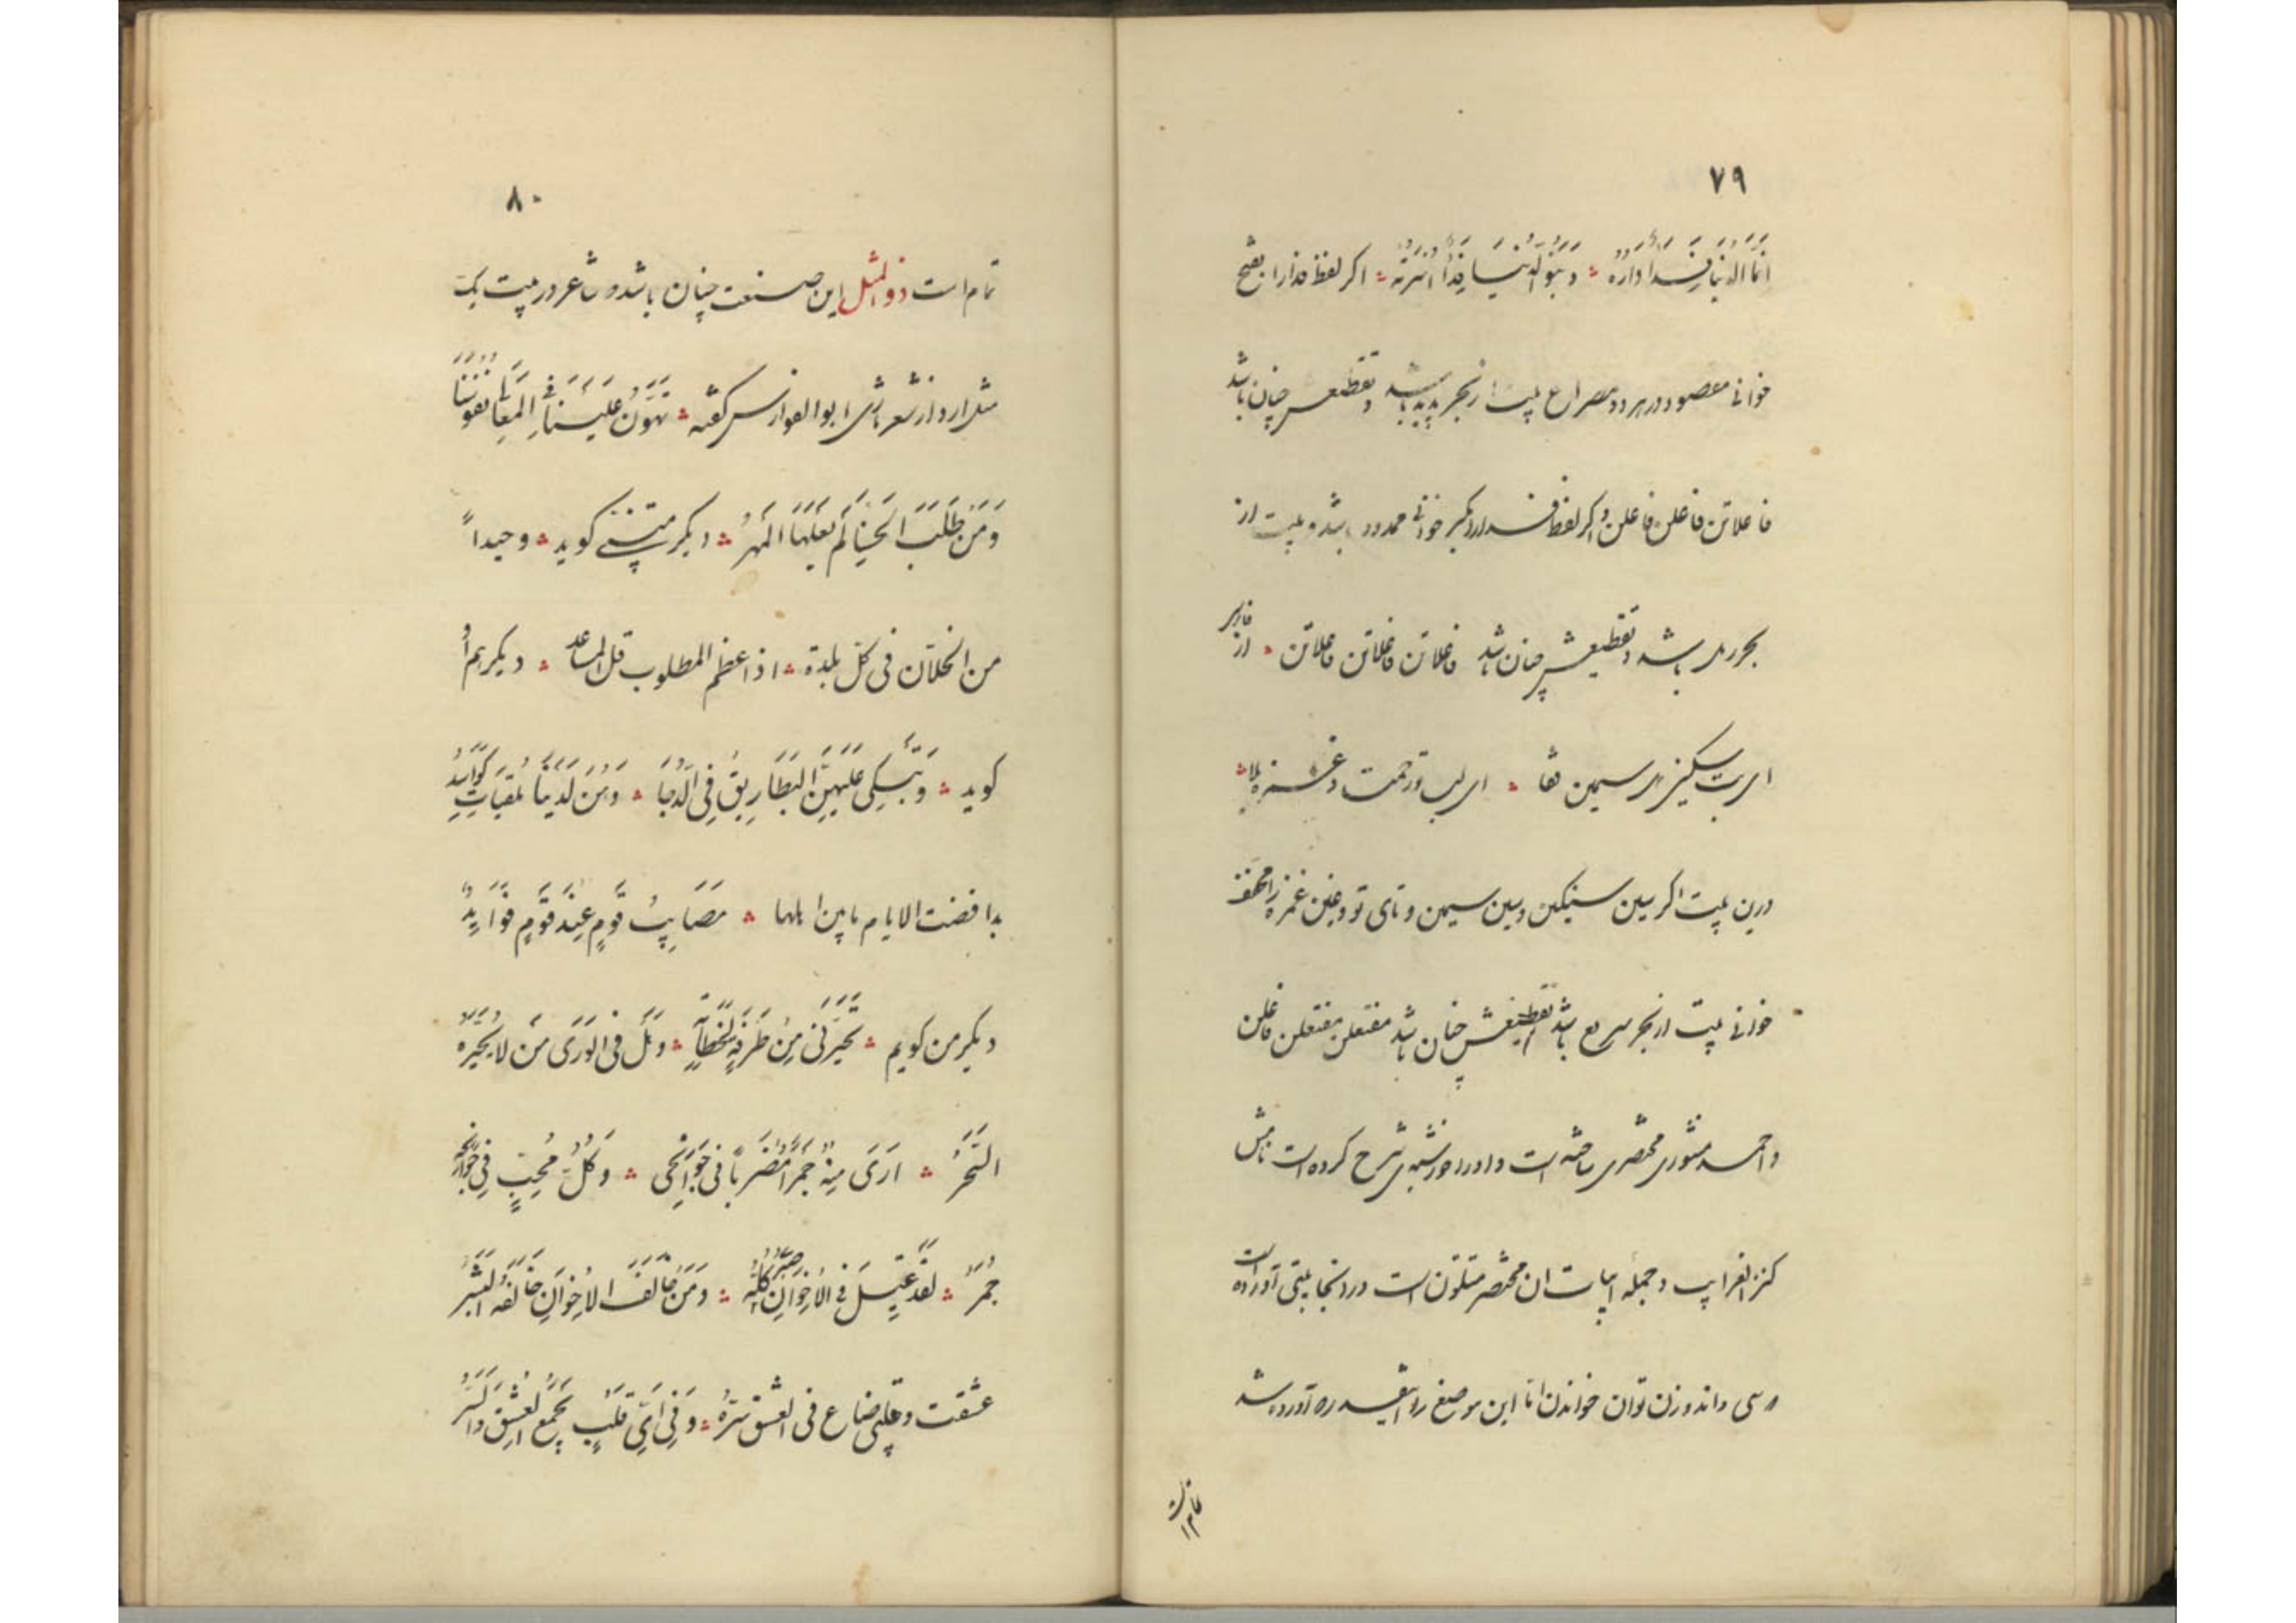 ۷۹
انما الدنیا فدا داره ؞ وبنو الدنیا فدا اسرته ؞ اکر لفظ فدا را بفتح
خوانی مقصور در هر دو مصراع بیت از بحر مدید باشد و تقطیعش چنان باشد
فاعلاتن فاعلن فاعلن و اکر لفظ فدا را بکسر خوانی ممدود باشد و بیت از
بحر رمل باشد و تقطیعش چنان باشد فاعلاتن فاعلاتن فاعلاتن ؞ از فارسی
ای بت سنکین دل سیمین قفا ؞ ای لب تو رحمت و غمزه بلا ؞
درین بیت اکر سین سنکین و سین سیمین و تای تو و غین غمزه را مخفف
خوانی بیت از بحر سریع باشد تقطیعش چنان باشد مفتعلن مفتعلن فاعلن
و احمد منشوری مختصری ساخته است و او را خورشیدی شرح کرده است نامش
کنز الغرایب و جمله ابیات ان مختصر متلون است در انجا بیتی آورده است
و سی و اند وزن توان خواندن اما این موضع را اینقدر آورده شد
تمام است
۸۰
تمام است ذو المثل این صنعت چنان باشد و شاعر در بیت یک
مثل ارد از شعر تازی ابو الفوارس کفته ؞ تهون علینا فی المعالی نفوسنا
ومن طلب الحسناء لم یغلها المهر ؞ دیکر متنبی کوید ؞ وحیدا
من الخلان فی کل بلدة ؞ اذا عظم المطلوب قل المساعد ؞ دیکر هم او
کوید ؞ وتبکی علیهن البطاریق فی الدجا ؞ وهن لدینا ملقیات کواسد
بذا قضت الایام ما بین اهلها ؞ مصایب قوم عند قوم فواید
دیکر من کویم ؞ تحیرنی من طرفه لحظاته ؞ وهل فی الوری من لا یحیره
السحر ؞ اری منه جمرا مضربا فی جوانحی ؞ وکل محب فی جوانحه
جمر ؞ لقد عیل فی الاخوان صبری کله ؞ ومن خالف الاخوان خالفه الصبر
عشقت وقلبی ضاع فی العشق سره ؞ وفی ای قلب یجمع العشق والسر